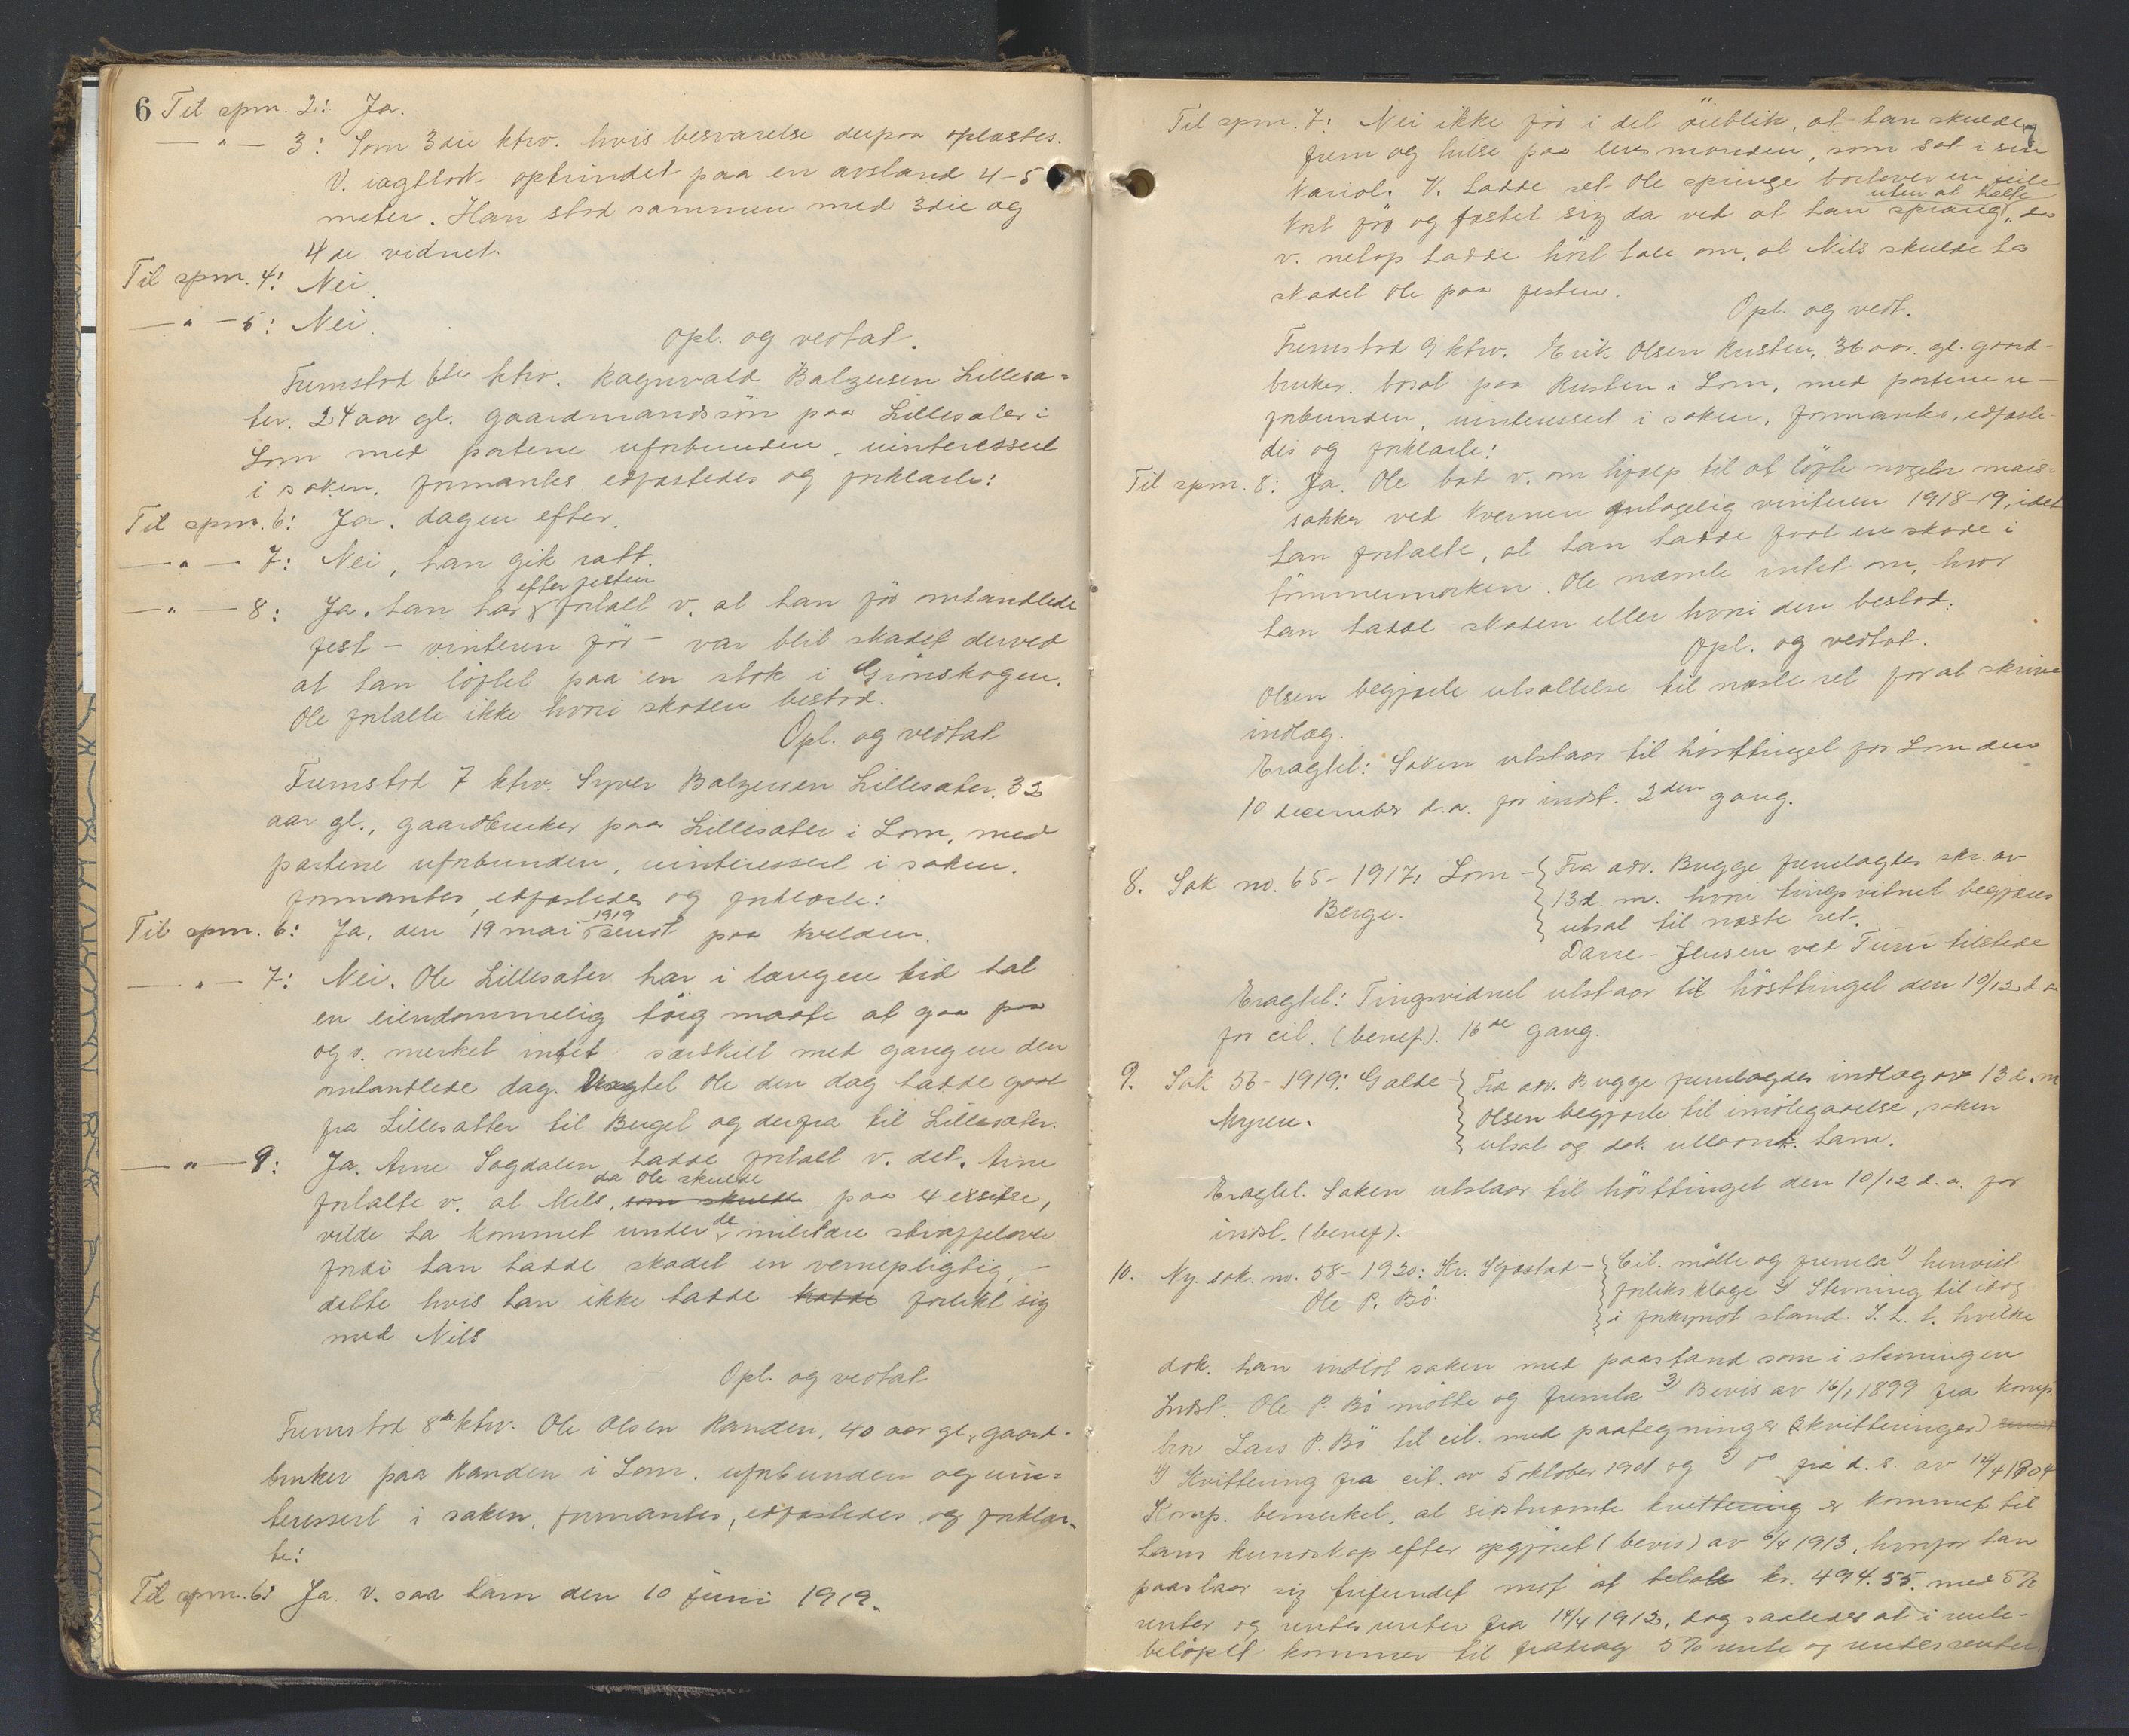 6 Til spm. 2: Ja.
— " — 3: Som 3die ktrv. hvis besvarelse derpaa oplæstes.
V. iagttok optrindet paa en avstand 4-5
meter. Han stod sammen med 3die og
4de vidnet.
Til spm. 4: Nei.
— " — 5: Nei.
Opl. og vedtat.
Fremstod 6te ktrv. Ragnvald Balzersen Lillesæ=
ter. 24 aar gl. gaardmandssøn paa Lillesæter i
Lom med partene uforbunden, uinteressert
i saken, formantes edfæstedes og forklarte:
Til spm. 6: Ja. dagen efter.
— " — 7: Nei, han gik ratt.
efter festen
— " — 8: Ja. han har fortalt v. at han før omhandlede
fest - vinteren før - var blit skadet derved
at han løftet paa en stok i Grønskogen.
Ole fortalte ikke hvori skaden bestod.
Opl. og vedtat
Fremstod 7 ktrv. Syver Balzersen Lillesæter. 32
aar gl., gaardbruker paa Lillesæter i Lom, med
partene uforbunden, uinteressert i saken.
formantes, edfæstedes og forklarte:
1919
Til spm. 6: Ja, den 19 mai senst paa kvelden.
— " — 7: Nei. Ole Lillesæter har i længere tid hat
en eiendommelig tøig maate at gaa paa
og v. merket intet særskilt med gangen den
omhandlede dag. Uagtet Ole den dag hadde gaat
fra Lillesæter til Berget og derfra til Lillesæter.
— " — 9: Ja. Arne Sagdalen hadde fortalt v. det. Arne
da Ole skulde
fortalte v. at Nils, som skulde paa exsitse,
de
vilde ha kommet under militære straffelove
fordi han hadde skadet en vernepligtig, -
dette hvis han ikke hadde hadde forlikt sig
med Nils
Opl. og vedtat
Fremstod 8de ktrv. Ole Olsen Randen, 40 aar gl, gaard-
bruker paa Randen i Lom. uforbunden og uin=
teressert i saken, formantes, edfæstedes og forklar-
te:
Til spm. 6: Ja. v. saa ham den 10 juni 1919.
Til spm. 7: Nei ikke før i det øieblik, at han skulde 7
frem og hilse paa lensmanden, som sat i sin
kariol. V. hadde set Ole springe bortover en
uten at halte
kort før og fæstet sig da ved at han sprang, da
v. netop hadde hørt tale om, at Nils skulde ha
skadet Ole paa festen.
Opl. og vedt.
Fremstod 9 ktrv. Erik Olsen Rusten, 36 aar. gl. gaard-
bruker. bosat paa Rusten i Lom, med partene u-
forbunden, uinteressert i saken, formantes, edfæste-
des og forklarte:
Til spm. 8: Ja. Ole bad v. om hjælp til at løfte nogen mais-
sækker ved kvernen antagelig vinteren 1918-19, idet
han fortalte, at han hadde faat en skade i
tømmermarken. Ole nævnte intet om, hvor
han hadde skaden eller hvori den bestod.
Opl. og vedtat.
Olsen begjærte utsættelse til næste ret for at skrive
indlæg.
Eragtet: Saken utstaar til høsttinget for Lom den
10 december d.a. for indst. 2den gang.
8. Sak no. 65-1917: Lom - Fra adv. Bugge fremlagdes skr. av
Berge. 13 d. m. hvori tingsvidnet begjæres
utsat til næste ret.
Dane-Jensen ved Furu tilstede
Eragtet: Tingsvidnet utstaar til høsttinget den 10/12 d. a
for cit. (benef). 16de gang.
9. Sak 56-1919: Galde - Fra adv. Bugge fremlagdes indlæg av 13 d. m
Myren. Olsen begjærte til imøtegaaelse, saken
utsat og dok. utlaant ham.
Eragtet. Saken utstaar til høsttinget den 10/12 d. a. for
indst. (benef).
10. Ny. sak. no. 58-1920: Kr. Sjøstad - Cit. møtte og fremla 1) henvist
Ole P. Bø. forliksklage 2) Stevning til idag
i forkyndt stand. I. h. t. hvilke
dok. han indlot saken med paastand som i stevningen
Indst. Ole P. Bø møtte og fremla 3) Bevis av 16/1 1899 fra komp.
bror Lars P. Bø til cit. med paategninger (kvitteringer)
4) Kvittering fra cit. av 5 oktober 1901 og 5) do fra d. s. av 14/4 1904
Komp. bemerket, at sidstnævnte kvittering er kommet til
hans kundskap efter opgjøret (bevis) av 6/4 1913, hvorfor han
paastaar sig frifundet mot at betale kr. 494.55. med 5%
renter og rentes renter fra 14/4 1912, dog saaledes at i rente-
beløpet kommer til fradrag 5% rente og rentesrenter